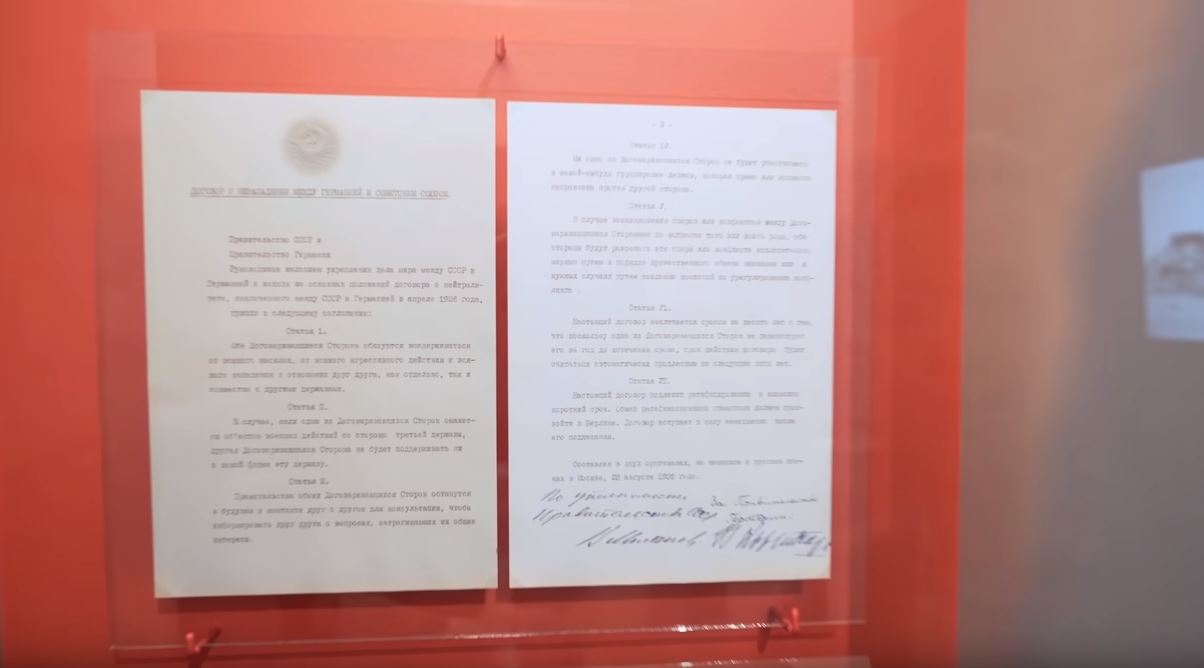 ДОГОВОР О НЕНАПАДЕНИИ МЕЖДУ ГЕРМАНИЕЙ И СОВЕТСКИМ СОЮЗОМ.
Правительство СССР и
Правительство Германии
Руководимые желанием укрепления дела мира между СССР и
Германией и исходя из основных положений договора о нейтрали-
тете, заключенного между СССР и Германией в апреле 1926 года,
пришли к следующему соглашению:
Статья I.
Обе Договаривающиеся Стороны обязуются воздерживаться
от всякого насилия, от всякого агрессивного действия и вся-
кого нападения в отношении друг друга, как отдельно, так и
совместно с другими державами.
Статья II.
В случае, если одна из Договаривающихся Сторон окажет-
ся об'ектом военных действий со стороны третьей державы,
другая Договаривающаяся Сторона не будет поддерживать ни
в какой форме эту державу.
Статья III.
Правительства обеих Договаривающихся Сторон останутся
в будущем в контакте друг с другом для консультации, чтобы
информировать друг друга о вопросах, затрагивающих их общие
интересы.
- 2 -
Статья IV.
Ни одна из Договаривающихся Сторон не будет участвовать
в какой-нибудь группировке держав, которая прямо или косвенно
направлена против другой стороны.
Статья V.
В случае возникновения споров или конфликтов между Дого-
варивающимися Сторонами по вопросам того или иного рода, обе
стороны будут разрешать эти споры или конфликты исключительно
мирным путем в порядке дружественного обмена мнениями или в
нужных случаях путем создания комиссий по урегулированию конф-
ликта.
Статья VI.
Настоящий договор заключается сроком на десять лет с тем,
что поскольку одна из Договаривающихся Сторон не денонсирует
его за год до истечения срока, срок действия договора будет
считаться автоматически продленным на следующие пять лет.
Статья VII.
Настоящий договор подлежит ратифицированию в возможно
короткий срок. Обмен ратификационными грамотами должен прои-
зойти в Берлине. Договор вступает в силу немедленно после
его подписания.
Составлен в двух оригиналах, на немецком и русском язы-
ках в Москве, 23 августа 1939 года.
По уполномочию
Правительства СССР
В. Молотов